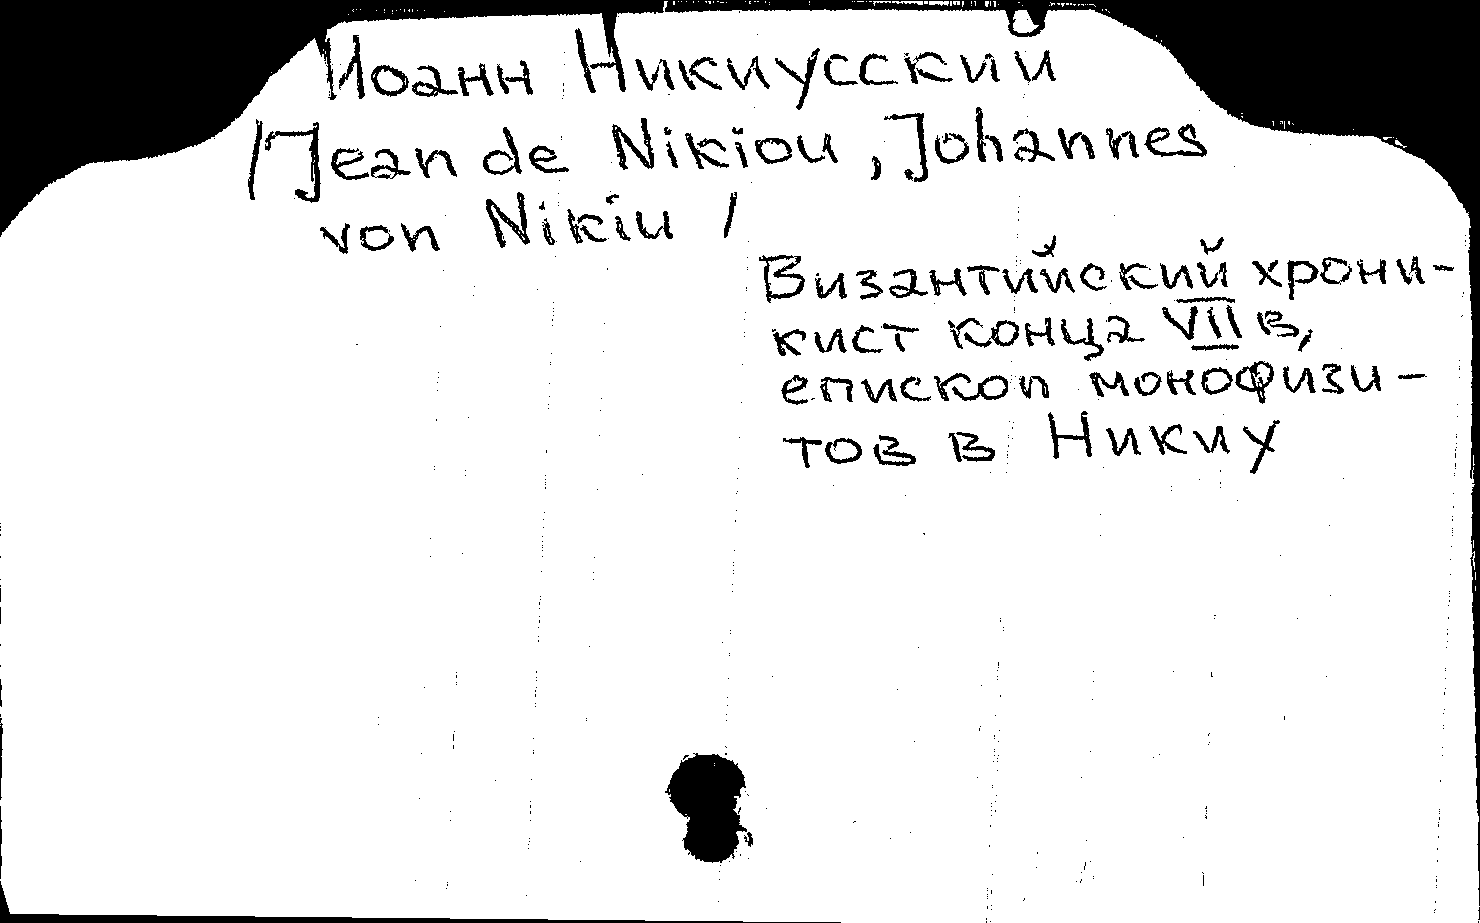 Иоанн Никиусский
/Jean de Nikiou, Johannes
von Nikiu /
Византийский хрони-
кист конца VII в,
епископ монофизи-
тов в Никиу